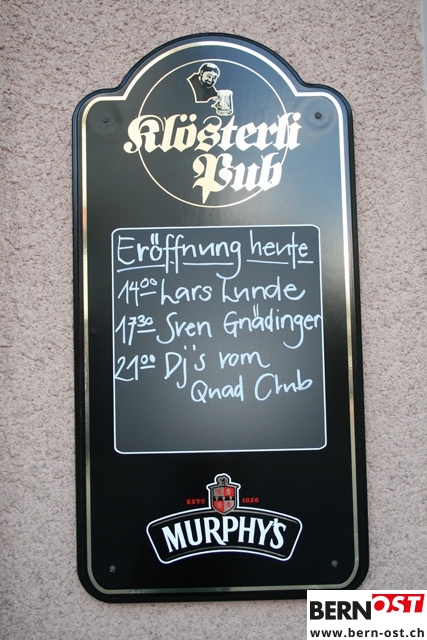 Klösterli
Pub
Eröffnung heute
14⁰⁰ Lars Lunde
17³⁰ Sven Gnädinger
21⁰⁰ Dj's vom
Quad Club
ESTD 1856
MURPHY'S
BERNOST
www.bern-ost.ch